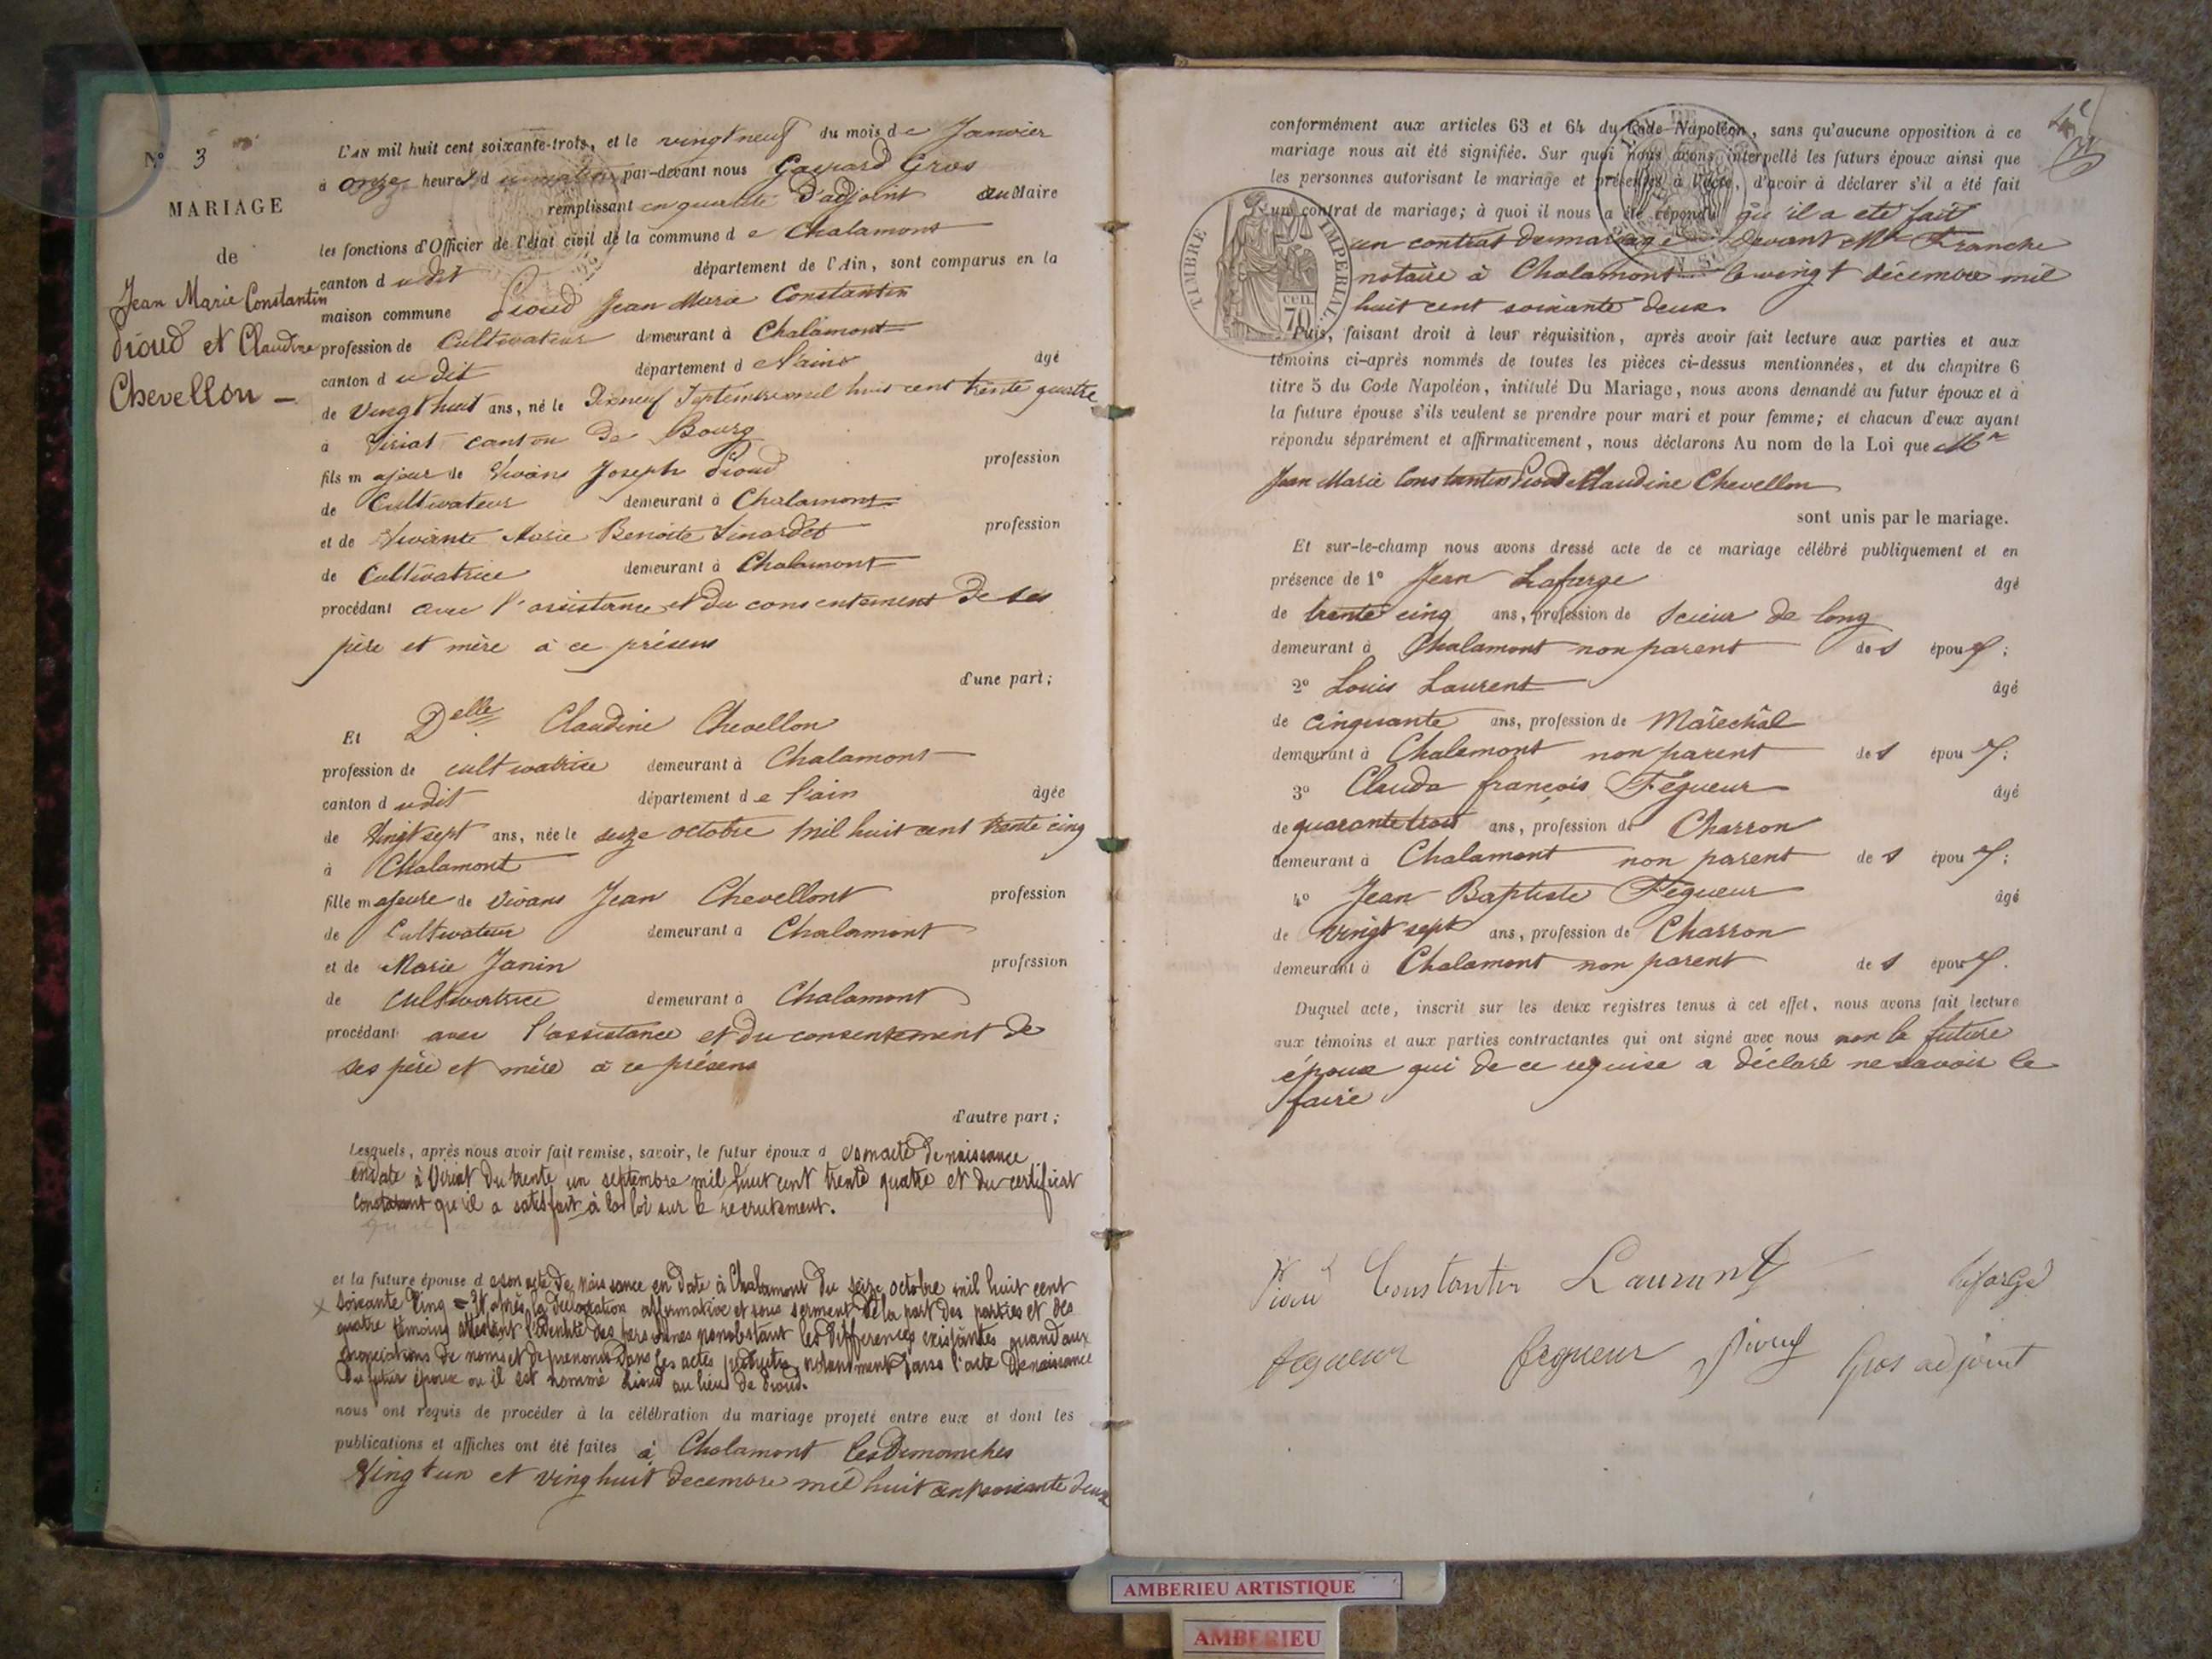 N° 3
MARIAGE
de
Jean Marie Constantin
Pioud et Claudine
Chevellon
L'AN mil huit cent soixante-trois, et le vingt neuf du mois de Janvier
à onze heures du matin par-devant nous Gaspard Gros
remplissant en qualité d'adjoint au Maire
les fonctions d'Officier de l'état civil de la commune de Chalamont
canton dudit département de l'Ain, sont comparus en la
maison commune Pioud Jean Marie Constantin
profession de Cultivateur demeurant à Chalamont
canton dudit département de l'ain âgé
de vingt huit ans, né le Dix neuf Septembre mil huit cent trente quatre
à Viriat canton de Bourg
fils majeur de vivans Joseph Pioud profession
de Cultivateur demeurant à Chalamont
et de vivante Marie Benoite profession
de Cultivatrice demeurant à Chalamont
procédant avec l'assistance et du consentement de ses
père et mère à ce présens
d'une part;
Et Delle Claudine Chevellon
profession de cultivatrice demeurant à Chalamont
canton dudit département de l'ain âgée
de vingt sept ans, née le seize octobre mil huit cent trente cinq
à Chalamont
fille majeure de vivans Jean Chevellont profession
de Cultivateur demeurant à Chalamont
et de Marie Janin profession
de cultivatrice demeurant à Chalamont
procédant avec l'assistance et du consentement de
ses père et mère à ce présens
d'autre part;
Lesquels, après nous avoir fait remise, savoir, le futur époux de son acte de naissance
en date à Viriat du trente un septembre mil huit cent trente quatre et du certificat
constatant qu'il a satisfait à la loi sur le recrutement.
et la future épouse de son acte de naissance en date à Chalamont du seize octobre mil huit cent
soixante cinq = Et après la déclaration affirmative et sous serment de la part des parties et des
quatre témoins attestant l'identité des personnes nonobstant les différences existantes quand aux
énonciations de noms et de prenoms dans les actes produits, notamment dans l'acte de naissance
du futur époux ou il est nommé Lioud au lieu de Pioud.
nous ont requis de procéder à la célébration du mariage projeté entre eux et dont les
publications et affiches ont été faites à Chalamont les Dimanches
vingt un et ving huit decembre mil huit cent soixante deux
conformément aux articles 63 et 64 du Code Napoléon, sans qu'aucune opposition à ce
mariage nous ait été signifiée. Sur quoi nous avons interpellé les futurs époux ainsi que
les personnes autorisant le mariage et présentes à l'acte, d'avoir à déclarer s'il a été fait
un contrat de mariage; à quoi il nous a été répondu qu'il a été fait
un contrat de mariage devant Me Franche
notaire à Chalamont le vingt décembre mil
huit cent soixante deux
TIMBRE IMPERIAL
70 cen.
Puis, faisant droit à leur réquisition, après avoir fait lecture aux parties et aux
témoins ci-après nommés de toutes les pièces ci-dessus mentionnées, et du chapitre 6
titre 5 du Code Napoléon, intitulé Du Mariage, nous avons demandé au futur époux et à
la future épouse s'ils veulent se prendre pour mari et pour femme; et chacun d'eux ayant
répondu séparément et affirmativement, nous déclarons Au nom de la Loi que Mr
Jean Marie Constantin Pioud et Claudine Chevellon
sont unis par le mariage.
Et sur-le-champ nous avons dressé acte de ce mariage célébré publiquement et en
présence de 1° Jean Lafarge âgé
de trente cinq ans, profession de scieur de long
demeurant à Chalamont non parent des époux;
2° Louis Laurent âgé
de cinquante ans, profession de Maréchal
demeurant à Chalamont non parent des époux;
3° Claude françois Fégueur âgé
de quarante trois ans, profession de Charron
demeurant à Chalamont non parent des époux;
4° Jean Baptiste Fégueur âgé
de vingt sept ans, profession de Charron
demeurant à Chalamont non parent des époux.
Duquel acte, inscrit sur les deux registres tenus à cet effet, nous avons fait lecture
aux témoins et aux parties contractantes qui ont signé avec nous non la future
épouse qui de ce requise a déclaré ne savoir le
faire
Pioud Constantin Laurent lafarge
fegueur fegueur Pioud Gros adjoint
AMBERIEU ARTISTIQUE
AMBERIEU